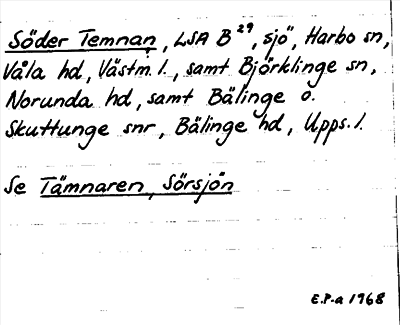 Söder Temnan, LSA B 29, sjö, Harbo sn,
Våla hd, Västm. l., samt Björklinge sn,
Norunda hd, samt Bälinge o.
Skuttunge snr, Bälinge hd, Upps. l.
Se Tämnaren, Sörsjön
E.P-a 1968